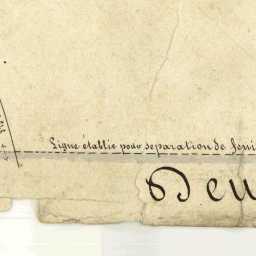 Ligne établie pour separation de
Deu